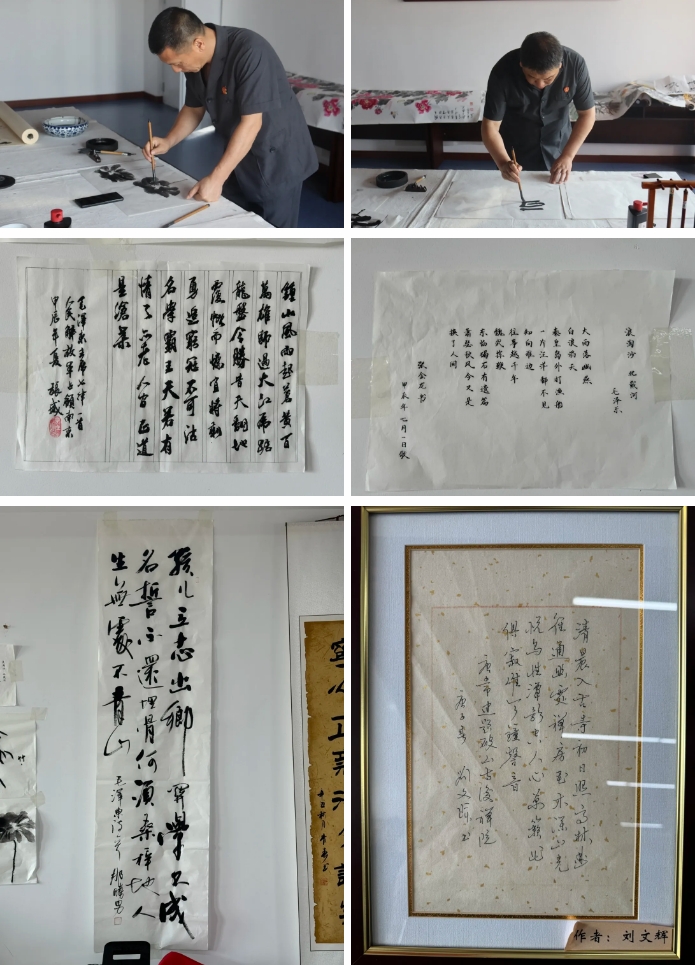 鐘山風雨起蒼黄百
萬雄師過大江虎踞
龍盤今勝昔天翻地
覆慨而慷宜將剩
勇追窮寇不可沽
名學霸王天若有
情天亦老人间正道
是滄桑
毛泽东主席七律一首
人民解放軍占領南京
甲辰年夏
浪淘沙 北戴河
毛泽东
大雨落幽燕
白浪滔天
秦皇岛外打渔船
一片汪洋都不见
知向谁边
往事越千年
魏武挥鞭
东临碣石有遗篇
萧瑟秋风今又是
换了人间
张金龙书
甲辰年七月一日敬
孩儿立志出鄉関學不成
名誓不還埋骨何須桑梓地人
生無處不青山
毛泽东诗
清晨入古寺初日照高林曲
径通幽處禅房花木深山光
悦鸟性潭影空人心萬籁此
俱寂惟闻鐘磬音
唐常建题破山寺後禅院
庚子夏 刘文辉书
作者：刘文辉